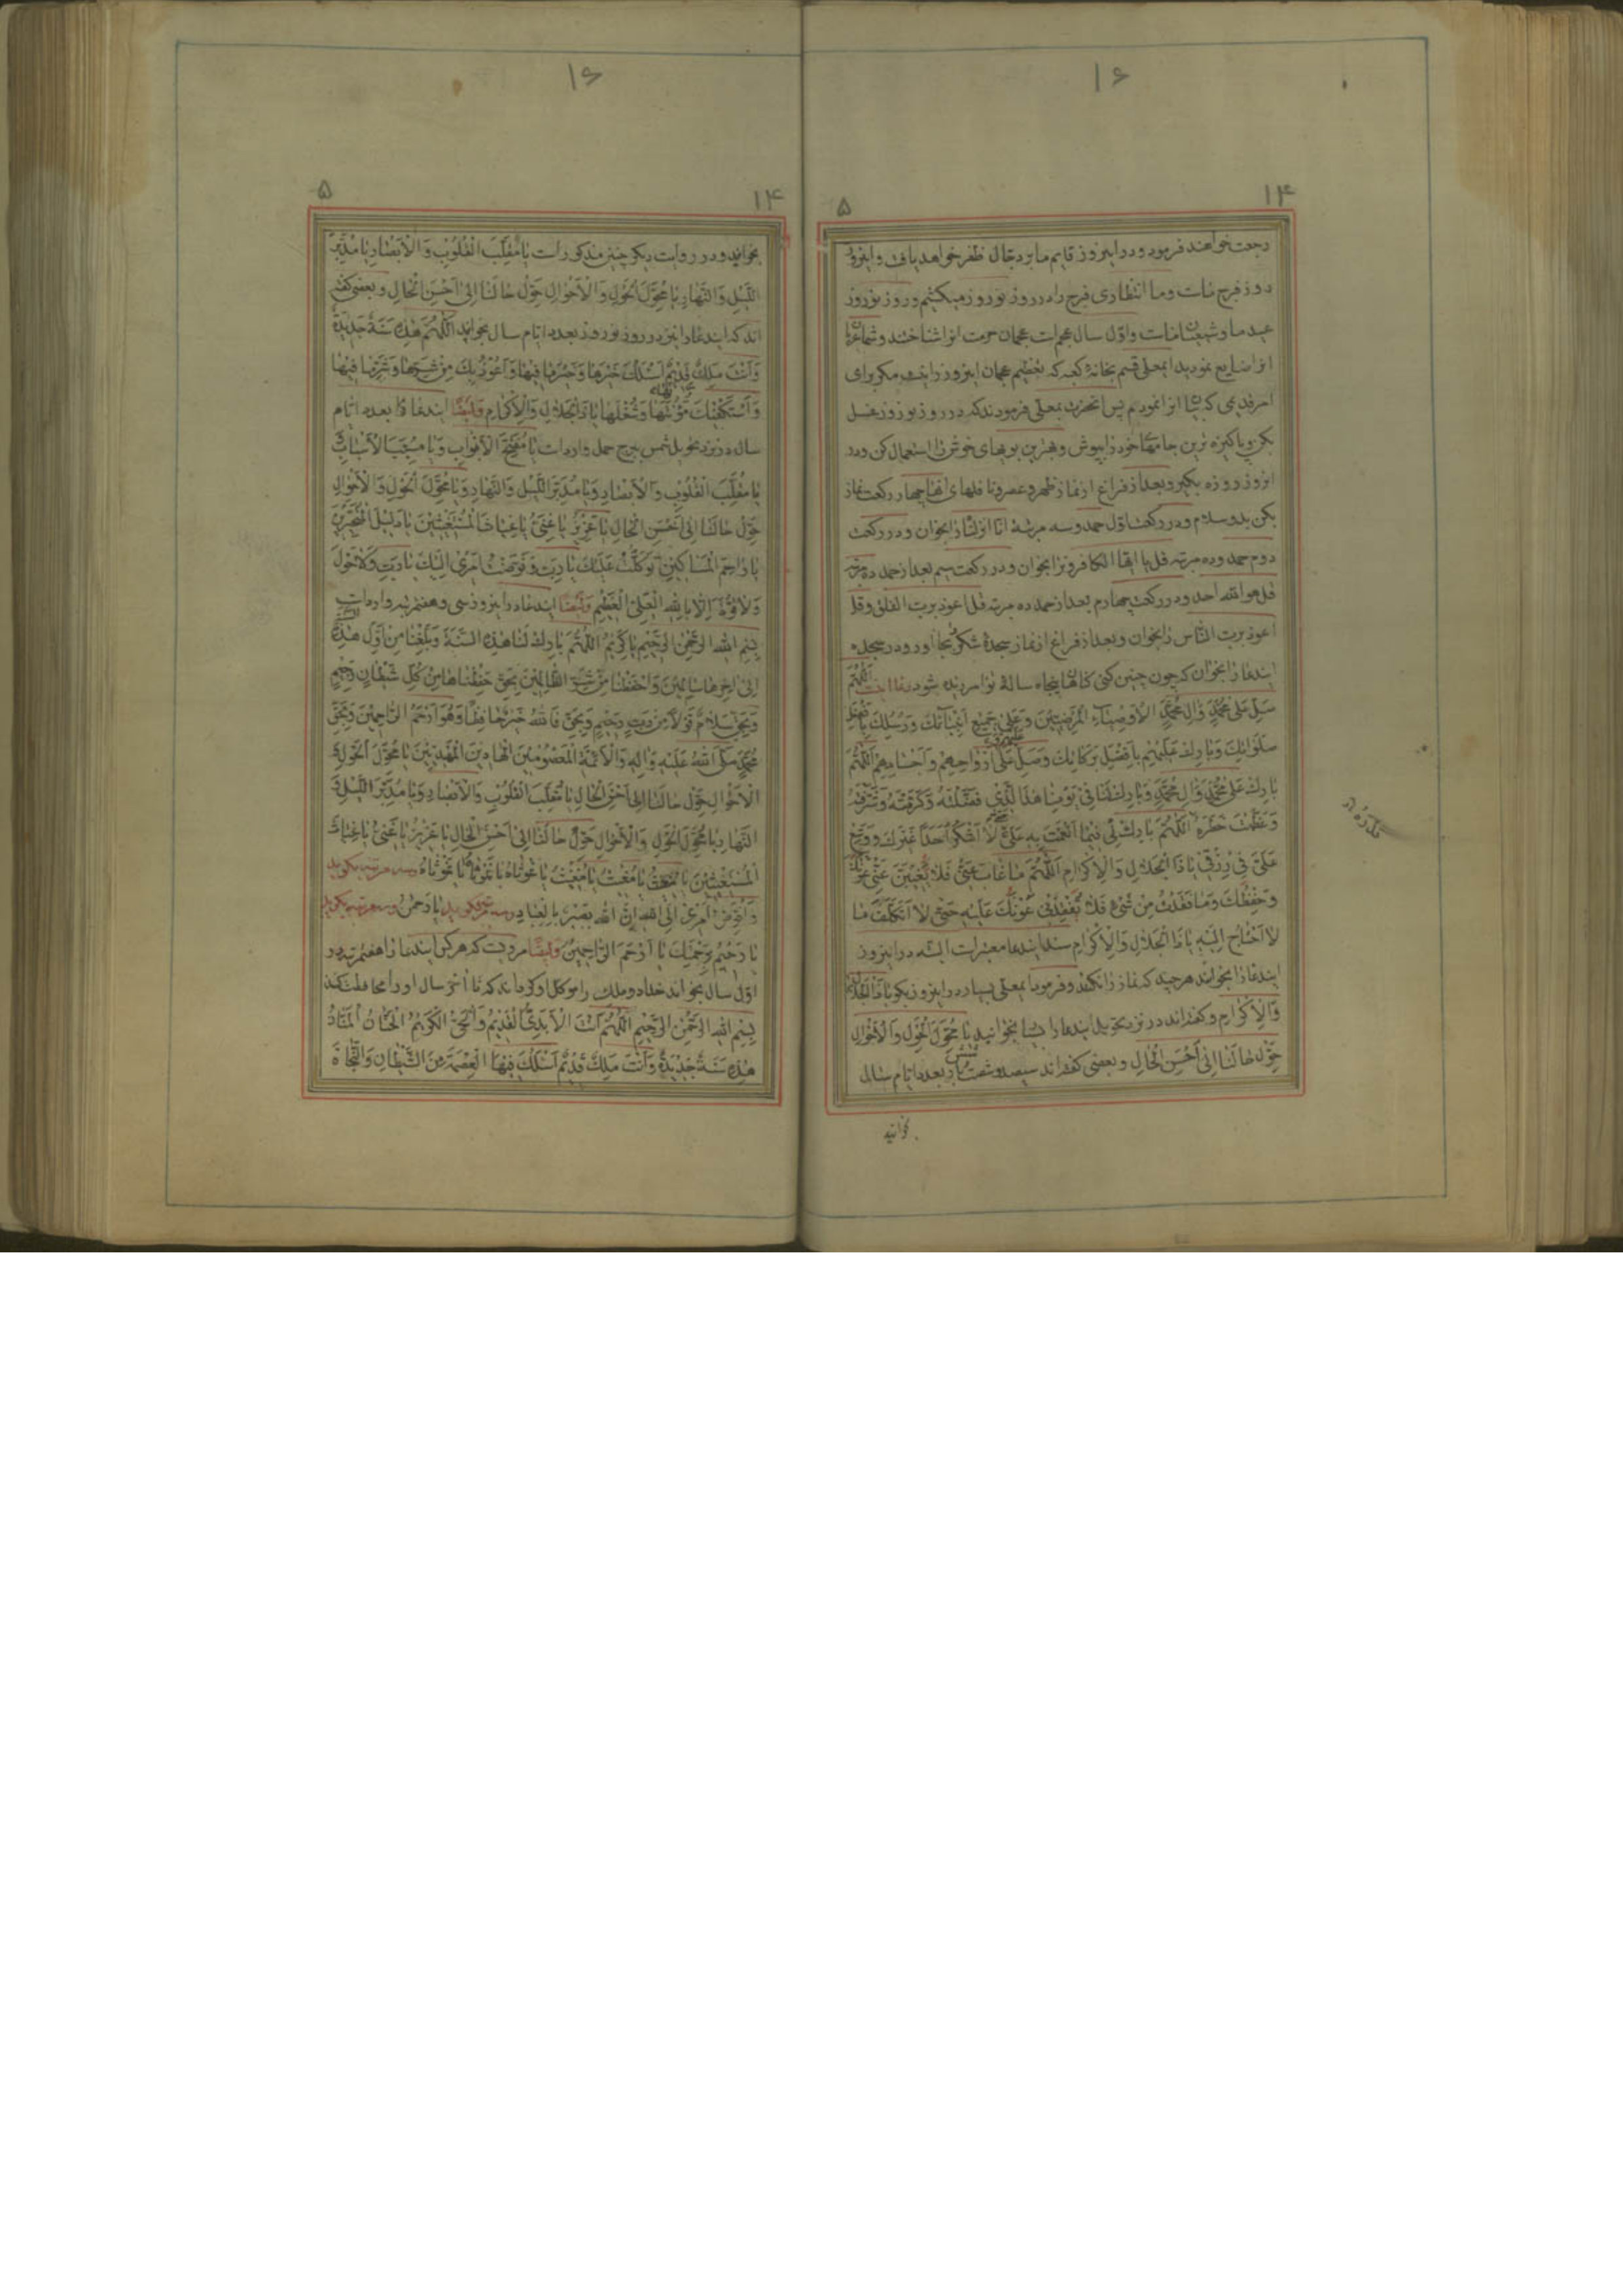 ۱۶
۱۴
۵
رجعت خواهند فرمود و در اینروز قایم ما بر دجال ظفر خواهد یافت و اینروز
روز فرج ماست و ما انتظاری فرج را در روز نوروز میکشیم و روز نوروز
عید ما و شیعیان ماست و اول سال عجم است عجمان حرمت انرا شناختند و شما عربان
انرا ضایع نمودید ایمعلی قسم بخانهٔ کعبه که تعظیم عجمان اینروز را نیست مکر برای
امر قدیمی که بیان انرا نمودم پس انحضرت بمعلی فرمودند که در روز نوروز غسل
بکن و پاکیزه ترین جامهای خود را بپوش و بهترین بویهای خوش را استعمال کن و در
انروز روزه بکیر و بعد از فراغ از نماز ظهر و عصر و نافلهای انها چهار رکعت نماز
بکن بدو سلام و در رکعت اول حمد و سه مرتبه انا انزلناه را بخوان و در رکعت
دوم حمد و ده مرتبه قل یا ایها الکافرون را بخوان و در رکعت سیم بعد از حمد ده مرتبه
قل هو الله احد و در رکعت چهارم بعد از حمد ده مرتبه قل اعوذ برب الفلق و قل
اعوذ برب الناس را بخوان و بعد از فراغ از نماز سجدهٔ شکر بجا اور و در سجده
ایندعا را بخوان که چون چنین کنی کناهان پنجاه سالهٔ تو امرزیده شود دعا اینست اَللّهُمَّ
صَلِّ عَلی مُحَمَّدٍ وَالِ مُحَمَّدٍ الْاَوْصِیاءِ الْمَرْضِیّینَ وَعَلی جَمیعِ اَنْبِیائِکَ وَرُسُلِکَ بِاَفْضَلِ
صَلَواتِکَ وَبارِکْ عَلَیْهِمْ بِاَفْضَلِ بَرَکاتِکَ وَصَلِّ عَلی اَرْواحِهِمْ وَاَجْسادِهِمْ اَللّهُمَّ
بارِکْ عَلی مُحَمَّدٍ وَالِ مُحَمَّدٍ وَبارِکْ لَنا فی یَوْمِنا هذَا الَّذی فَضَّلْتَهُ وَکَرَّمْتَهُ وَشَرَّفْتَهُ
وَعَظَّمْتَ خَطَرَهُ اَللّهُمَّ بارِکْ لی فیما اَنْعَمْتَ بِهِ عَلَیَّ حَتّی لا اَشْکُرَ اَحَداً غَیْرَکَ وَوَسِّعْ
عَلَیَّ فی رِزْقی یا ذَا الْجَلالِ وَالْاِکْرامِ اَللّهُمَّ ما غابَ عَنّی فَلا یَغیبَنَّ عَنّی عَوْنُکَ
وَحِفْظُکَ وَما فَقَدْتُ مِنْ شَیْءٍ فَلا تُفْقِدْنی عَوْنَکَ عَلَیْهِ حَتّی لا اَتَکَلَّفَ ما
لا اَحْتاجُ اِلَیْهِ یا ذَا الْجَلالِ وَالْاِکْرامِ سند ایندعا معتبر است البته در اینروز
ایندعا را بخوانند هر چند که نماز را نکنند و فرمود ایمعلی بسیار در اینروز بکو یا ذَا الْجَلالِ
وَالْاِکْرامِ و کفته‌اند در نزد تحویل ایندعا را بسیار بخوانید یا مُحَوِّلَ الْحَوْلِ وَالْاَحْوالِ
حَوِّلْ حالَنا اِلی اَحْسَنِ الْحالِ و بعضی کفته‌اند سیصد و شصت و شش بار بعدد ایام سال
بخوانید
۱۶
۱۴
۵
بخوانید و در روایت دیکر چنین مذکور است یا مُقَلِّبَ الْقُلُوبِ وَالْاَبْصارِ یا مُدَبِّرَ
اللَّیْلِ وَالنَّهارِ یا مُحَوِّلَ الْحَوْلِ وَالْاَحْوالِ حَوِّلْ حالَنا اِلی اَحْسَنِ الْحالِ و بعضی کفته
اند که ایندعا را نیز در روز نوروز بعدد ایام سال بخواند اَللّهُمَّ هذِهِ سَنَةٌ جَدیدَةٌ
وَاَنْتَ مَلِکٌ قَدیمٌ اَسْئَلُکَ خَیْرَها وَخَیْرَ ما فیها وَاَعُوذُ بِکَ مِنْ شَرِّها وَشَرِّ ما فیها
وَاَسْتَکْفیکَ مَؤُنَتَها وَشُغْلَها یا ذَا الْجَلالِ وَالْاِکْرامِ وَایضًا ایندعا را بعدد ایام
سال در نزد تحویل شمس ببرج حمل وارد است یا مُفَتِّحَ الْاَبْوابِ وَیا مُسَبِّبَ الْاَسْبابِ
یا مُقَلِّبَ الْقُلُوبِ وَالْاَبْصارِ وَیا مُدَبِّرَ اللَّیْلِ وَالنَّهارِ وَیا مُحَوِّلَ الْحَوْلِ وَالْاَحْوالِ
حَوِّلْ حالَنا اِلی اَحْسَنِ الْحالِ یا عَزیزُ یا غَنِیُّ یا غِیاثَ الْمُسْتَغیثینَ یا دَلیلَ الْمُتَحَیِّرینَ
یا راحِمَ الْمَساکینِ تَوَکَّلْتُ عَلَیْکَ یا رَبِّ وَفَوَّضْتُ اَمْری اِلَیْکَ یا رَبِّ وَلا حَوْلَ
وَلا قُوَّةَ اِلّا بِاللهِ الْعَلِیِّ الْعَظیمِ وَایضًا ایندعا در اینروز سی و هفت مرتبه وارد است
بِسْمِ اللهِ الرَّحْمنِ الرَّحیمِ یا کَریمُ اَللّهُمَّ بارِکْ لَنا هذِهِ السَّنَةَ وَبَلِّغْنا مِنْ اَوَّلِ هذِهِ
اِلی اخِرِها سالِمینَ وَاحْفَظْنا مِنْ شَرِّ الظّالِمینَ بِحَقِّ حَفِظْناها مِنْ کُلِّ شَیْطانٍ رَجیمٍ
وَبِحَقِّ سَلامٌ قَوْلاً مِنْ رَبٍّ رَحیمٍ وَبِحَقِّ فَاللهُ خَیْرٌ حافِظاً وَهُوَ اَرْحَمُ الرّاحِمینَ وَبِحَقِّ
مُحَمَّدٍ صَلَّی اللهُ عَلَیْهِ وَالِهِ وَالْاَئِمَّةِ الْمَعْصُومینَ الْهادینَ الْمَهْدِیّینَ یا مُحَوِّلَ الْحَوْلِ وَ
الْاَحْوالِ حَوِّلْ حالَنا اِلی اَحْسَنِ الْحالِ یا مُقَلِّبَ الْقُلُوبِ وَالْاَبْصارِ وَیا مُدَبِّرَ اللَّیْلِ وَ
النَّهارِ یا مُحَوِّلَ الْحَوْلِ وَالْاَحْوالِ حَوِّلْ حالَنا اِلی اَحْسَنِ الْحالِ یا عَزیزُ یا غَنِیُّ یا غِیاثَ
الْمُسْتَغیثینَ یا مُغیثُ یا مُغیثُ یا مُغیثُ یا غَوْثاهُ یا غَوْثاهُ یا غَوْثاهُ وسه مرتبه بکوید
وَاُفَوِّضُ اَمْری اِلَی اللهِ اِنَّ اللهَ بَصیرٌ بِالْعِبادِ وسه مرتبه بکوید یا رَحْمنُ وسه مرتبه بکوید
یا رَحیمُ بِرَحْمَتِکَ یا اَرْحَمَ الرّاحِمینَ وَایضًا مرویست که هر کس ایندعا را هفتمرتبه در
اول سال بخواند خدا دو ملک را موکل او کرداند که تا اخر سال او را محافظت کنند
بِسْمِ اللهِ الرَّحْمنِ الرَّحیمِ اَللّهُمَّ اَنْتَ الْاَبَدِیُّ الْقَدیمُ وَالْحَیُّ الْکَریمُ الْحَنّانُ الْمَنّانُ
هذِهِ سَنَةٌ جَدیدَةٌ وَاَنْتَ مَلِکٌ قَدیمٌ اَسْئَلُکَ فیهَا الْعِصْمَةَ مِنَ الشَّیْطانِ وَالنَّجاةَ